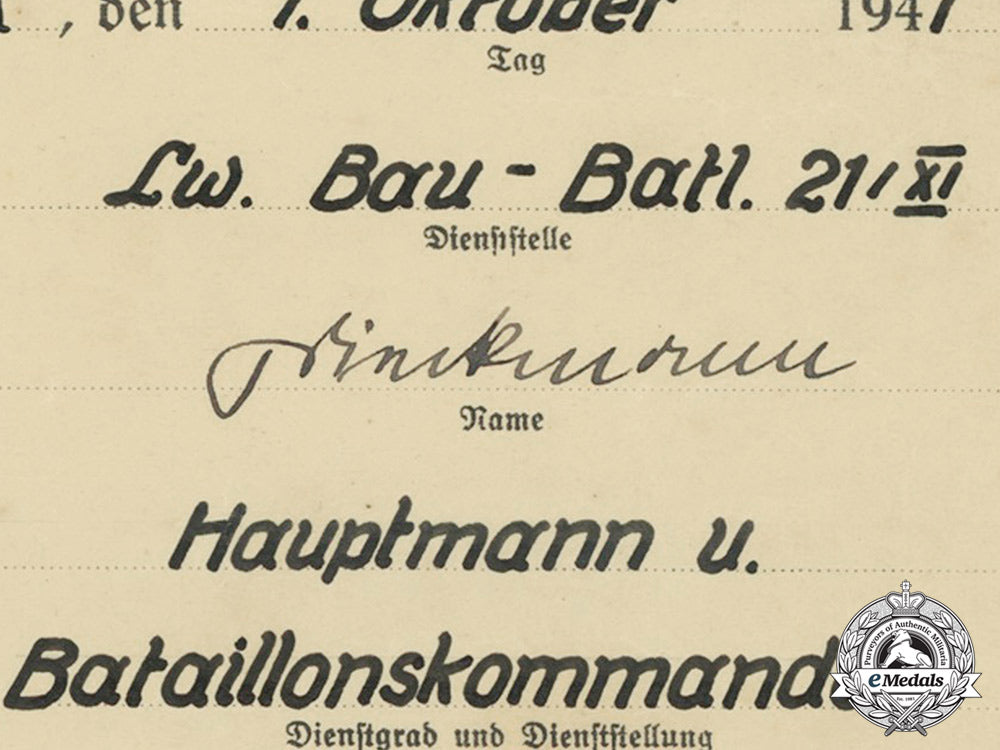 , den 1. Oktober 1941
Tag
Lw. Bau - Batl. 21/XI
Dienststelle
Name
Hauptmann u.
Bataillonskommand
Dienstgrad und Dienststellung
Purveyors of Authentic Militaria
eMedals